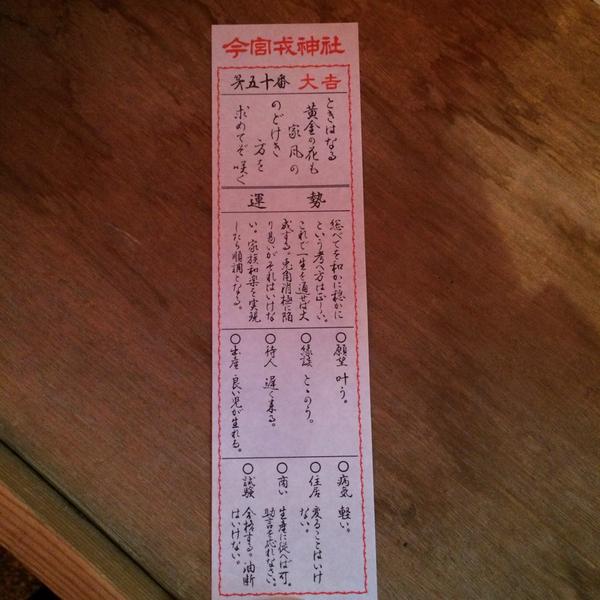 今宮戎神社
第五十番 大吉
ときはなる
黄金の花も
家風の
のどけき
方を
求めてぞ咲く
運勢
総べてを和かに穏かに
という考へ方は正しい。
これで一生を通せば大
成する。兎角消極に陥
り易いがそれはいけな
い。家族和楽を実現
したら順調となる。
○願望 叶う。
○縁談 とゝのう。
○待人 遅く来る。
○出産 良い児が生れる。
○病気 軽い。
○住居 変ることはいけ
ない。
○商い 生産に従へば可。
助言を忘れなさい。
○試験 合格する。油断
はいけない。